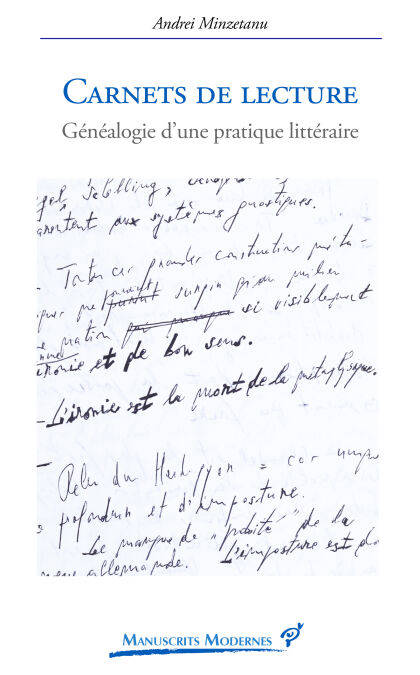 Andrei Minzetanu
CARNETS DE LECTURE
Généalogie d'une pratique littéraire
Schelling,
aux systèmes gnostiques.
- Toutes ces grandes constructions méta-
si visiblement
ironie et de bon sens.
- L'ironie est la mort de la métaphysique.
- Relu du Heidegger =
profondeur et d'imposture.
Le manque de "probité" de la
allemande. L'imposture est
MANUSCRITS MODERNES